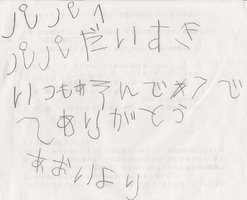 パパへ
パパだいすき
いつもあそんでくれて
ありがとう
あおいより